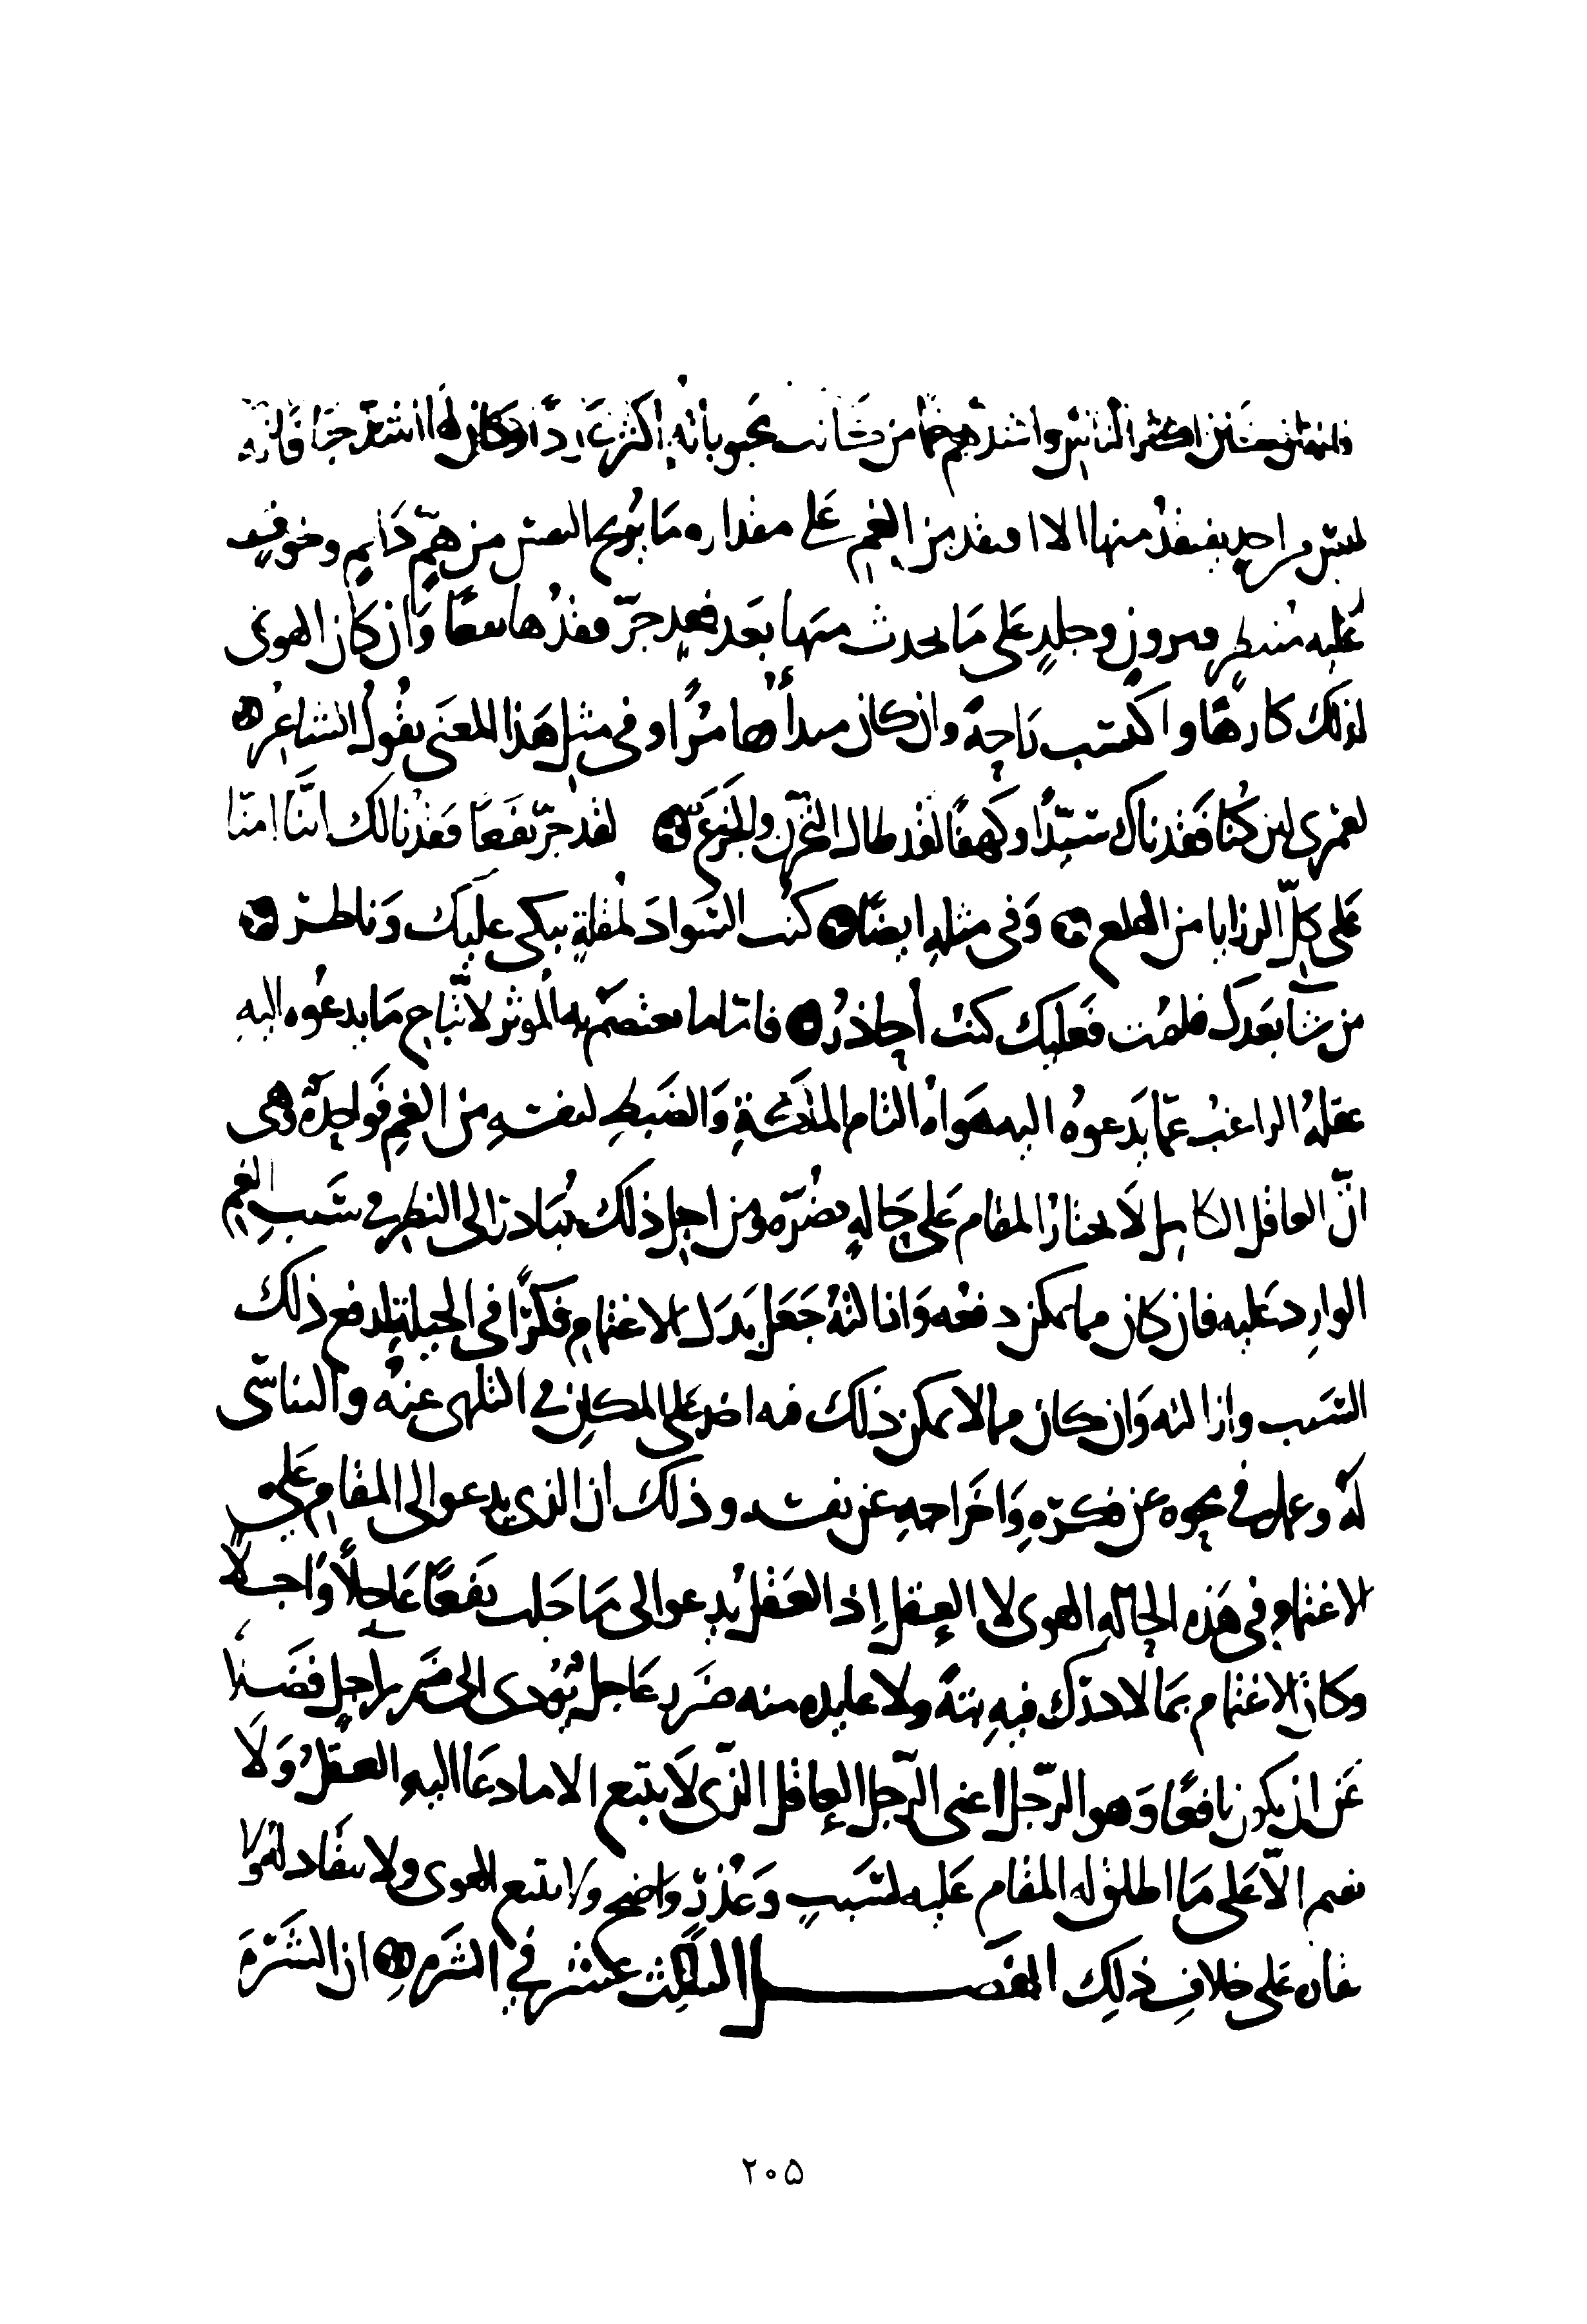 اكثر الناس واشدهم غما من كانت محبوباته اكثر عددا وكان لها اشد حبا فانه
ليس من واحد يفقد منها الا افقده من الغم على مقداره ما يريح النفس من هم دايم وخوف
عليه منتظر وجلد على ما يحدث منها بعد فقد جر فقدها نفعا وان كان الهوى
لذلك كارها واكتسب راحة وان كان مبدأها مرا وفي مثل هذا المعنى يقول الشاعر
لعمري لئن كنا فقدناك سيدا وكهفا لقد طال التحزن والجزع لقد جر نفعا فقدنا لك اننا امنا
على كل الرزايا من الهلع وفي مثله ايضا كنت السواد لمقلة تبكي عليك وناظر
من شآ بعدك فليمت فعليك كنت أحاذر فاما ما يعتصم به الموثر لاتباع ما يدعوه اليه
عقله الراغب عما يدعوه اليه هواه التام الملكة والضبط لنفسه من الغم فواحدة وهي
انّ العاقل الكامل لا يختار المقام على حالة تضره ومن اجل ذلك يبادر الى النظر في سبب الغم
الوارد عليه فان كان مما يمكن دفعه وازالته جعل بدل الاغتمام فكرا في الحيلة لدفع ذلك
السبب وازالته وان كان مما لا يمكن ذلك فيه اخذ على المكان في التلهي عنه والتناسي
له وعمل في محوه عن فكره واخراجه عن نفسه وذلك ان الذي يدعو الى المقام على
الاغتمام في هذه الحالة الهوى لا العقل إذ العقل يدعو الى ما جلب نفعا عاجلا وآجلا
وكان الاغتمام بما لا درك فيه بتة ولا عايده منه ضرر عاجل يؤدى الى ضرر آجل فضلا
عن ان يكون نافعا وهو الرجل اعني الرجل العاقل الذي لا يتبع الا ما دعا اليه العقل ولا
يقيم الا على ما اطلق له المقام عليه لسبب وعذر واضح ولا يتبع الهوى ولا ينقاد له ولا
يقاربه على خلاف ذلك الفصل الثالث عشر في الشره ان الشره
٢٠٥